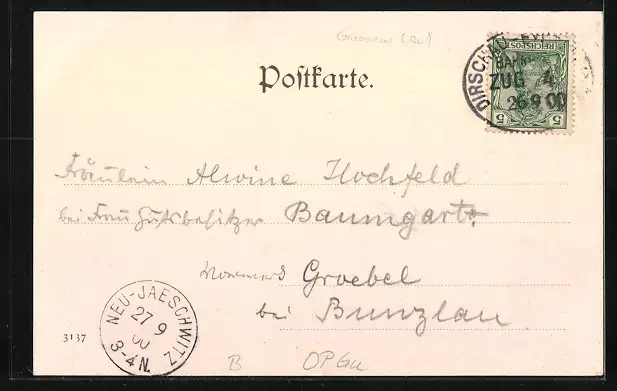 Gnesen (R.)
Postkarte.
DIRSCHAU
BAHN
ZUG 4
26 9 00
REICHSPOST
5 5
Fräulein Alwine Hochfeld
bei Frau Gutsbesitzer Baumgart
Groebel
bei Bunzlau
NEU-JAESCHWITZ
27 9
00
3-4 N.
3137
B OPGu